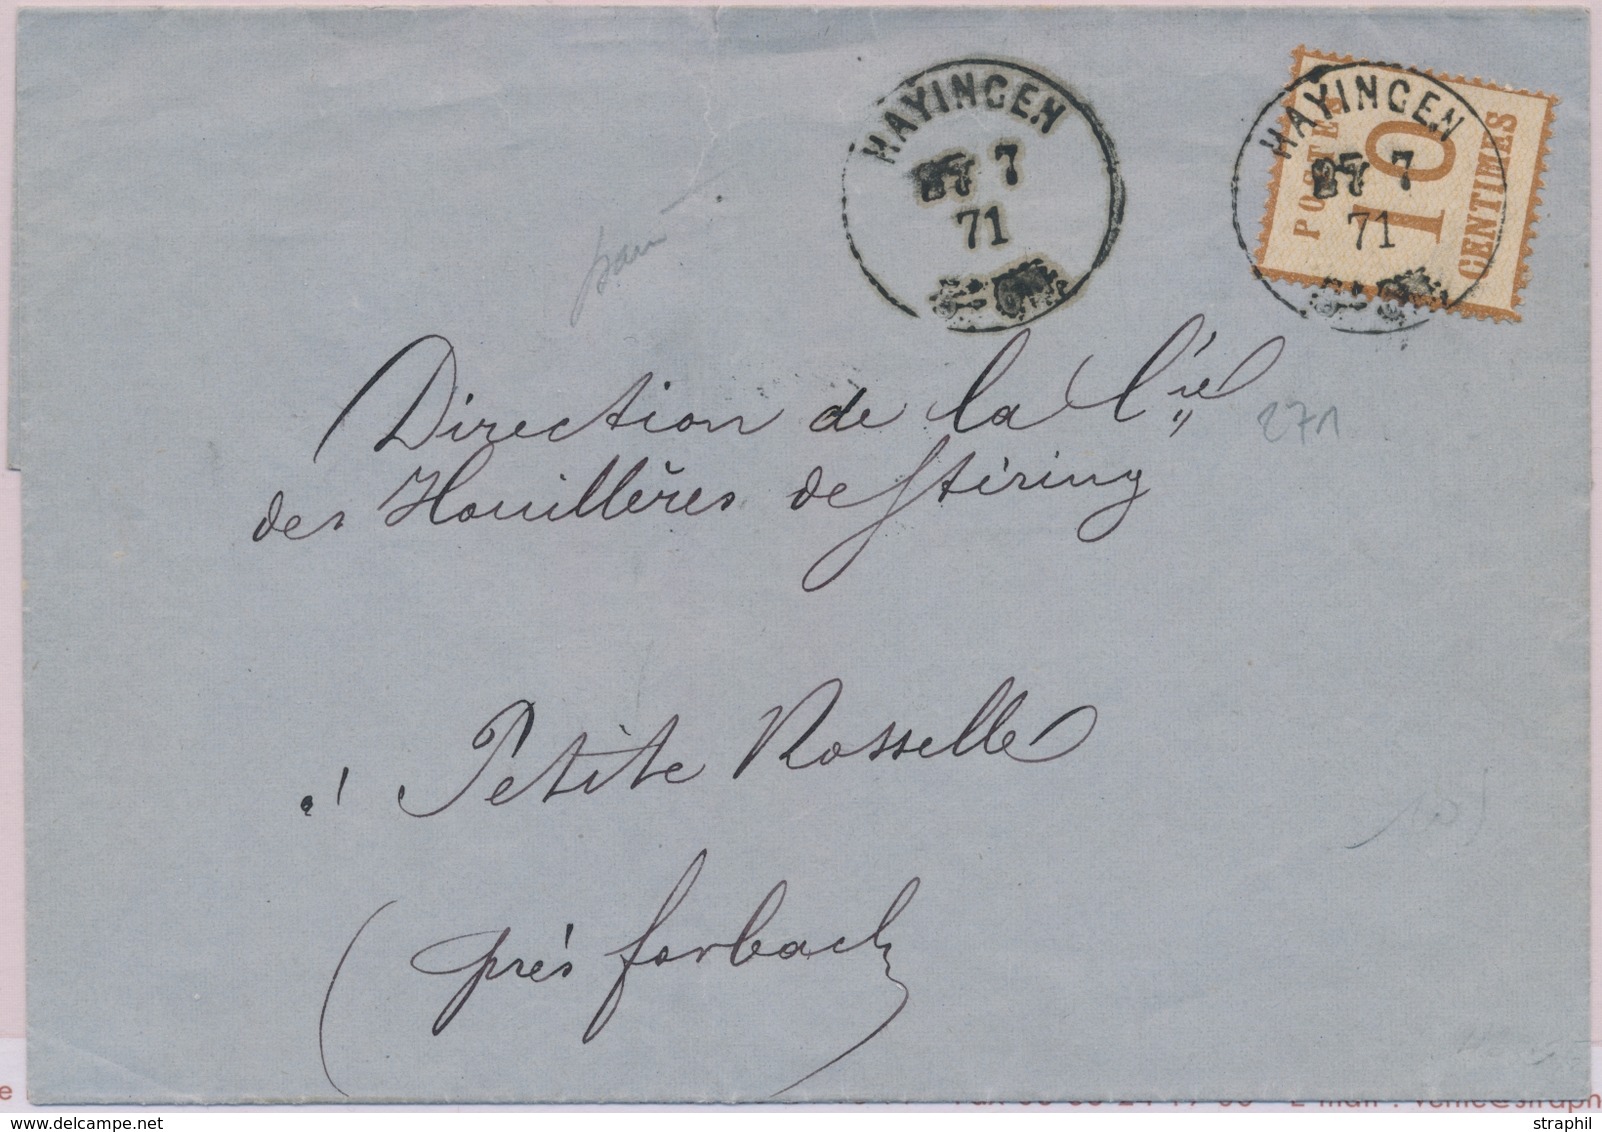 HAYINGEN
7
71
HAYINGEN
7
71
POSTES
10
CENTIMES
Direction de la Cie
des Houillères de Stiring
271
à Petite Rosselle
(près forbach)
delcampe.net
straphil